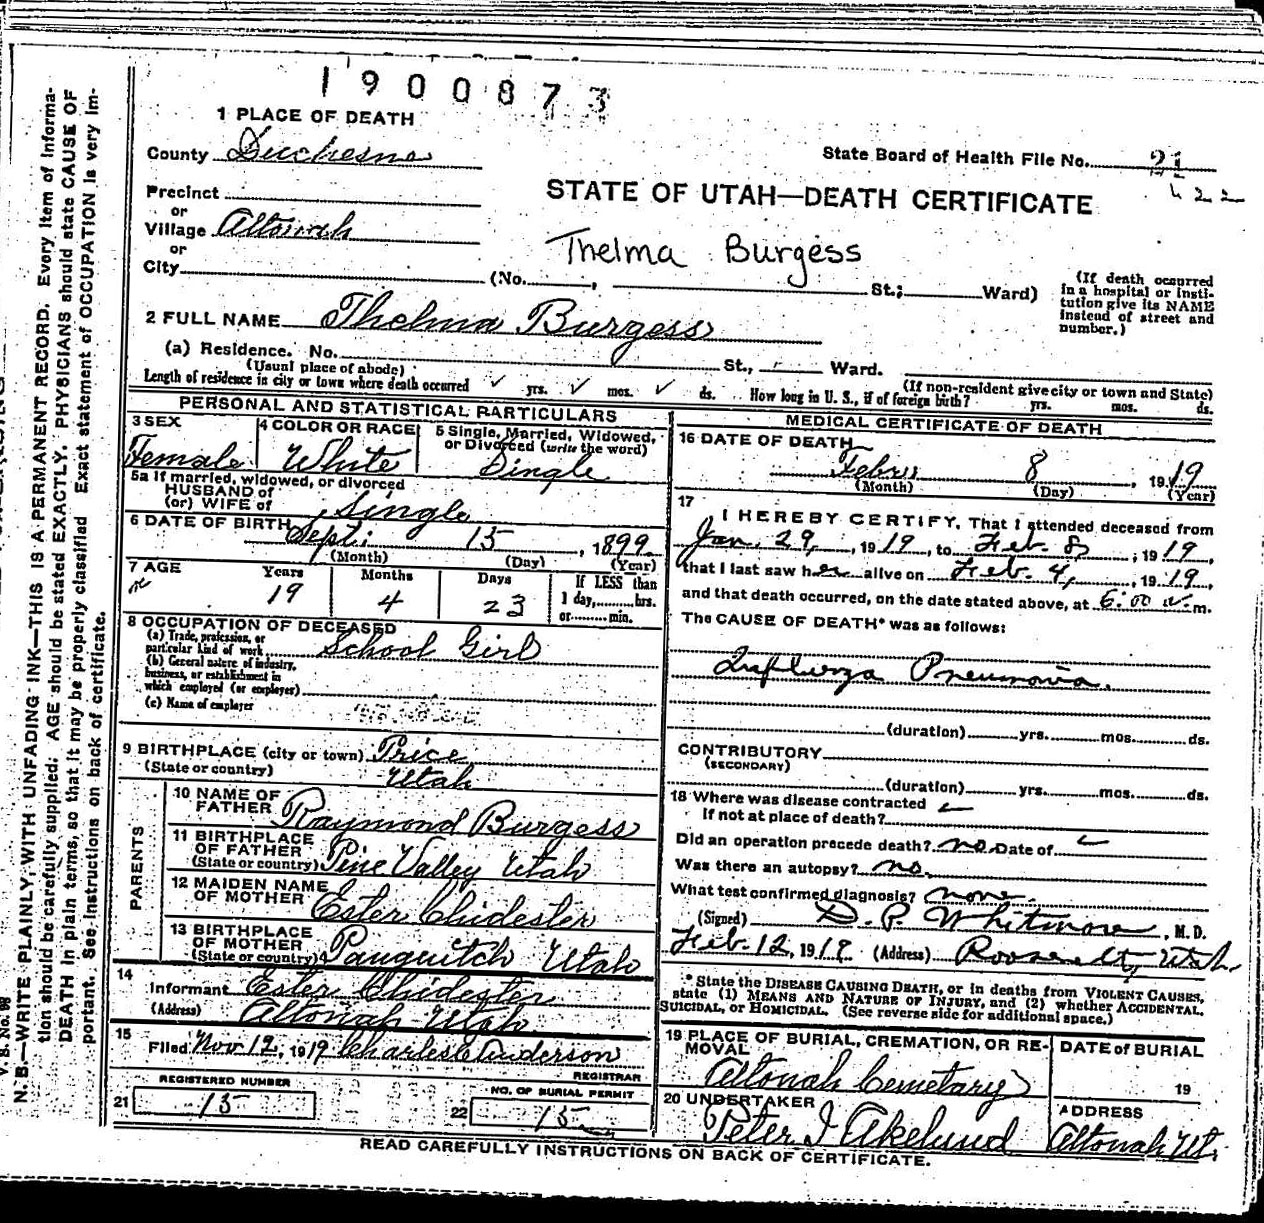 1900873
1 PLACE OF DEATH
County Duchesne
State Board of Health File No. 21
422
Precinct
or
Village Altonah
or
City (No. , St.; Ward)
STATE OF UTAH—DEATH CERTIFICATE
Thelma Burgess
(If death occurred in a hospital or insti-
tution give its NAME
instead of street and
number.)
2 FULL NAME Thelma Burgess
(a) Residence. No. St., Ward.
(Usual place of abode)
(If non-resident give city or town and State)
Length of residence in city or town where death occurred ✓ yrs. ✓ mos. ✓ ds. How long in U. S., if of foreign birth? yrs. mos. ds.
PERSONAL AND STATISTICAL PARTICULARS
3 SEX
Female
4 COLOR OR RACE
White
5 Single, Married, Widowed,
or Divorced (write the word)
Single
5a If married, widowed, or divorced
HUSBAND of
(or) WIFE of Single
6 DATE OF BIRTH Sept. 15, 1899
(Month) (Day) (Year)
7 AGE Years Months Days If LESS than
19 4 23 1 day, hrs.
or min.
8 OCCUPATION OF DECEASED
(a) Trade, profession, or
particular kind of work School Girl
(b) General nature of industry,
business, or establishment in
which employed (or employer)
(c) Name of employer
9 BIRTHPLACE (city or town) Price
(State or country) Utah
PARENTS
10 NAME OF
FATHER Raymond Burgess
11 BIRTHPLACE
OF FATHER
(State or country) Pine Valley Utah
12 MAIDEN NAME
OF MOTHER Ester Chidester
13 BIRTHPLACE
OF MOTHER
(State or country) Panguitch Utah
14
Informant Ester Chidester
(Address) Altonah Utah
15
Filed Nov 12, 1919 Charles Anderson
REGISTRAR
REGISTERED NUMBER
21 15
NO. OF BURIAL PERMIT
22 15
MEDICAL CERTIFICATE OF DEATH
16 DATE OF DEATH
8, 1919
(Month) (Day) (Year)
17
I HEREBY CERTIFY, That I attended deceased from
Jan. 29, 1919, to Feb. 8, 1919,
that I last saw her alive on Feb. 4, 1919,
and that death occurred, on the date stated above, at 6:00 m.
The CAUSE OF DEATH* was as follows:
Influenza Pneumonia.
(duration) yrs. mos. ds.
CONTRIBUTORY
(SECONDARY)
(duration) yrs. mos. ds.
18 Where was disease contracted
If not at place of death?
Did an operation precede death? no Date of
Was there an autopsy? no.
What test confirmed diagnosis? none.
(Signed) D. P. Whitmore, M.D.
Feb. 12, 1919 (Address) Roosevelt, Utah.
* State the DISEASE CAUSING DEATH, or in deaths from VIOLENT CAUSES,
state (1) MEANS AND NATURE OF INJURY, and (2) whether ACCIDENTAL,
SUICIDAL, or HOMICIDAL. (See reverse side for additional space.)
19 PLACE OF BURIAL, CREMATION, OR RE-
MOVAL
Altonah Cemetary
DATE of BURIAL
19
20 UNDERTAKER
Peter I Akelund
ADDRESS
Altonah Ut.
READ CAREFULLY INSTRUCTIONS ON BACK OF CERTIFICATE.
V. S. No. 98
N. B.—WRITE PLAINLY, WITH UNFADING INK—THIS IS A PERMANENT RECORD. Every item of informa-
tion should be carefully supplied. AGE should be stated EXACTLY. PHYSICIANS should state CAUSE OF
DEATH in plain terms, so that it may be properly classified. Exact statement of OCCUPATION is very im-
portant. See instructions on back of certificate.